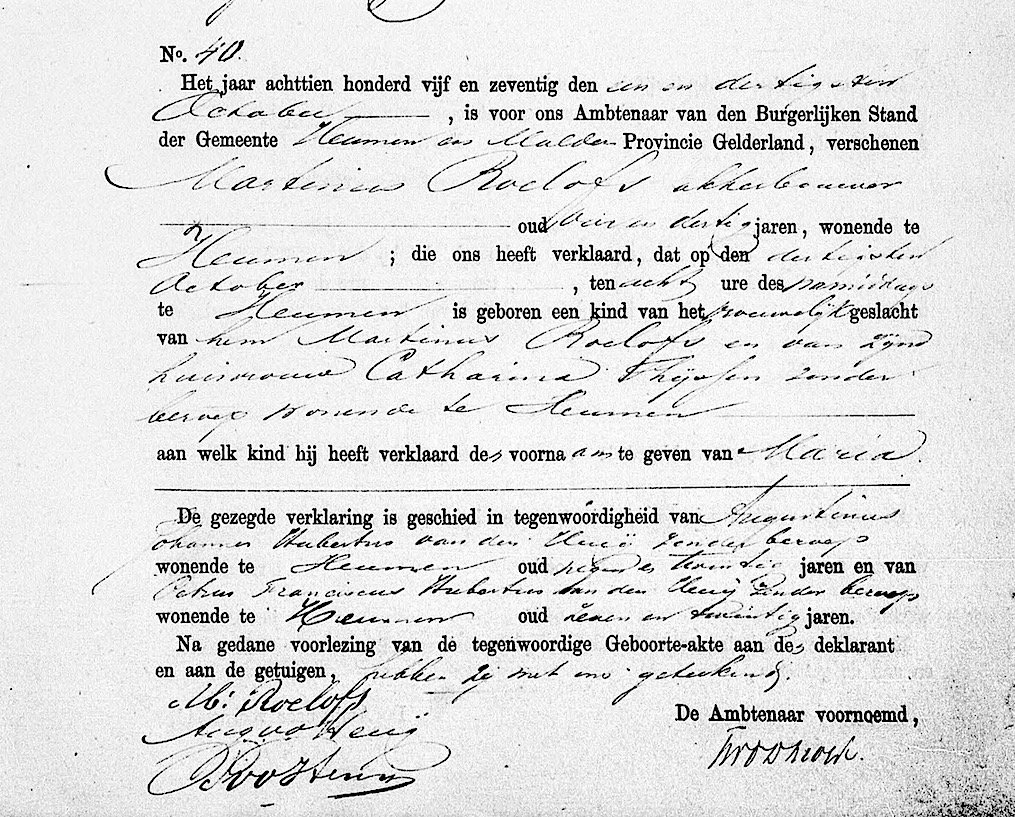 No. 40.
Het jaar achttien honderd vijf en zeventig den een en dertigsten
October, is voor ons Ambtenaar van den Burgerlijken Stand
der Gemeente Heumen en Malden Provincie Gelderland, verschenen
Martinus Roelofs akkerbouwer
oud vier en dertig jaren, wonende te
Heumen; die ons heeft verklaard, dat op den dertigsten
October, ten acht ure des namiddags
te Heumen is geboren een kind van het vrouwelijk geslacht
van hem Martinus Roelofs en van zijne
huisvrouw Catharina Thijssen zonder
beroep wonende te Heumen
aan welk kind hij heeft verklaard den voornaam te geven van Maria.
De gezegde verklaring is geschied in tegenwoordigheid van Augustinus
Johannes Hubertus van den zonder beroep
wonende te Heumen oud negen en twintig jaren en van
Petrus Franciscus Hubertus van den zonder beroep
wonende te Heumen oud zeven en twintig jaren.
Na gedane voorlezing van de tegenwoordige Geboorte-akte aan den deklarant
en aan de getuigen, hebben zij met ons geteekend.
M: Roelofs
De Ambtenaar voornoemd,